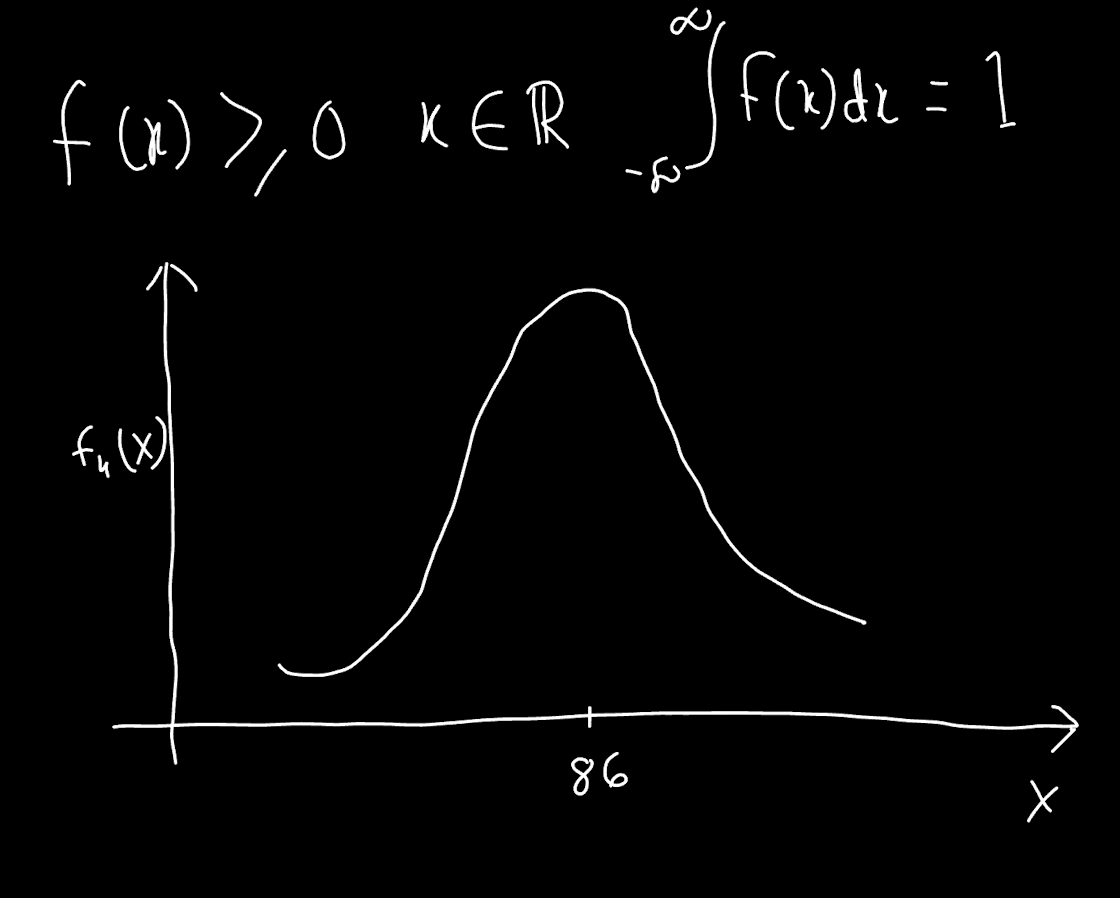 f(x) ⩾ 0 x ∈ ℝ ∫_{-∞}^{∞} f(x)dx = 1
f₄(x)
86
x